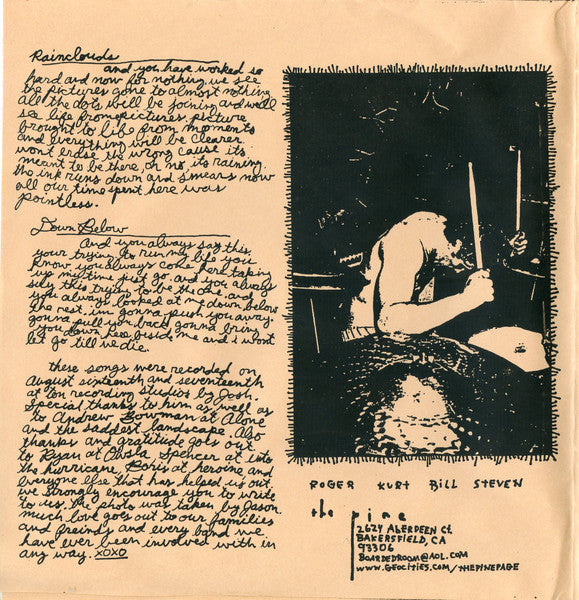 Rainclouds
and you have worked so
hard and now for nothing we see
the pictures gone to almost nothing
all the dots will be joining and will
see life from pictures, picture
brought to life from moments
and everything will be clearer
wont erase the wrong cause its
meant to be there, oh no, its raining.
the ink runs down and smears now
all our time spent here was
pointless.
Down Below
And you always say this
your trying to run my life you
know you always come here taking
up my time just go. and you always
say this trying to be more. and
you always looked at me down below
the rest. im gonna push you away.
gonna pull you back gonna bring
you down here beside me and i wont
let go till we die.
these songs were recorded on
August sixteenth and seventeenth
at Ten recording studios by Josh.
Special thanks to him as well as
to Andrew Bowman at Alone
and the saddest landscape. Also
thanks and gratitude goes out
to Ryan at Ohala, Spencer at into
the hurricane, Boris at heroine, and
everyone else that has helped us out.
we strongly encourage you to write
to us. The photo was taken by Jason
much love goes out to our families
and freinds and every band we
have ever been involved with in
any way. xoxo
ROGER KURT BILL STEVEN
the pine
2629 ABERDEEN Ct.
BAKERSFIELD, CA
93306
BOARDEDROOM@AOL.COM
WWW.GEOCITIES.COM/THEPINEPAGE